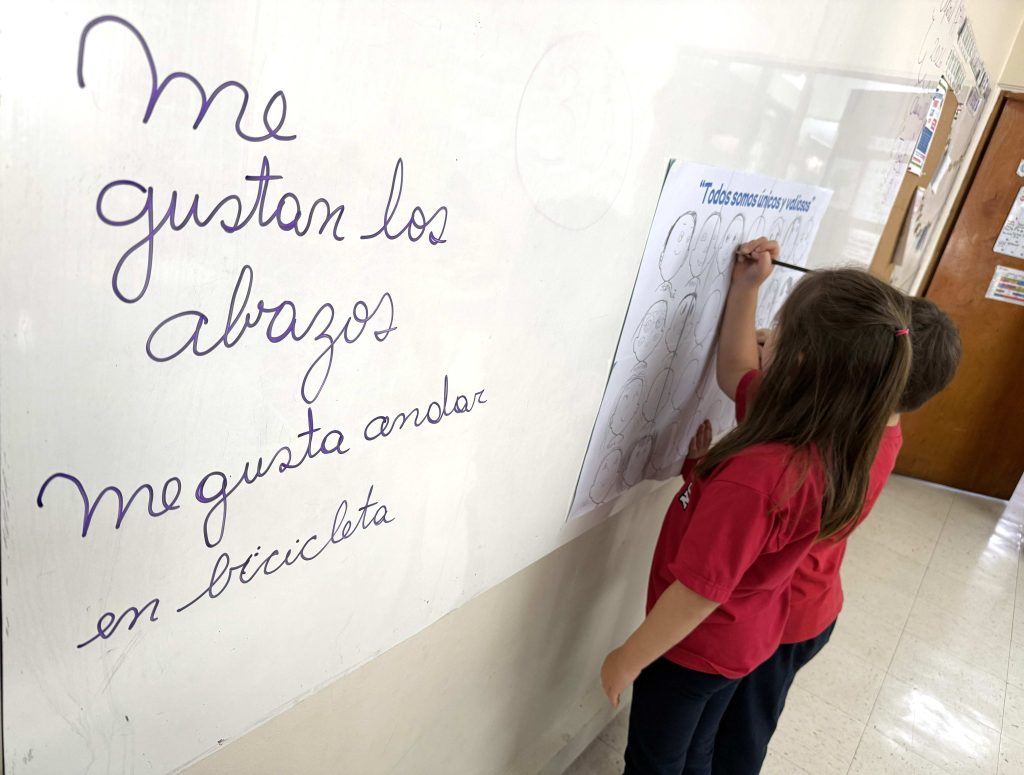 Me
gustan los
abrazos
Me gusta andar
en bicicleta
"Todos somos únicos y valiosos"